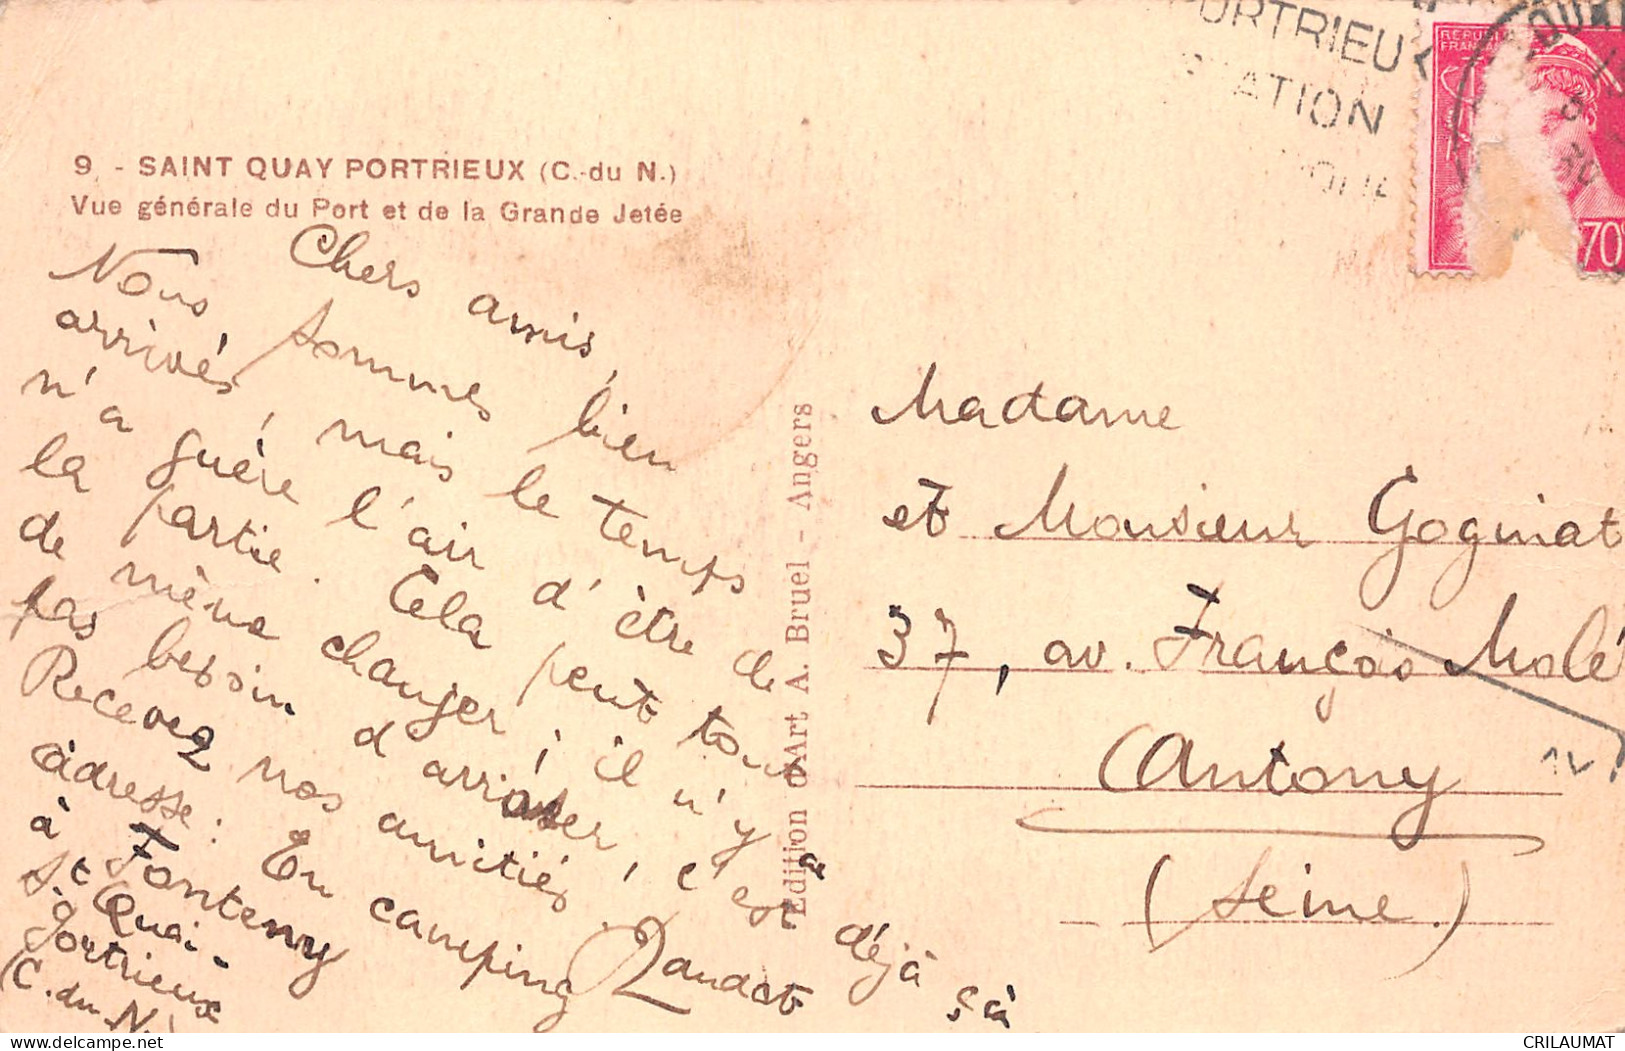 9 - SAINT QUAY PORTRIEUX (C.-du N.)
Vue générale du Port et de la Grande Jetée
Chers amis,
Nous sommes bien
arrivés, mais le temps
n'a guère l'air d'être de
la partie. Cela peut tout
de même changer ; il n'y a
pas besoin d'arroser, c'est déjà çà
Recevez nos amitiés.
adresse : En camping
à Fonteny
St Quai-
Portrieux
(C. du N.)
Edition d'Art A. Bruel - Angers
PORTRIEUX
STATION
RÉPUB
FRANÇAI
70c
Madame
et Monsieur Goginat
37, av. François Molé
Antony
(Seine)
CRILAUMAT